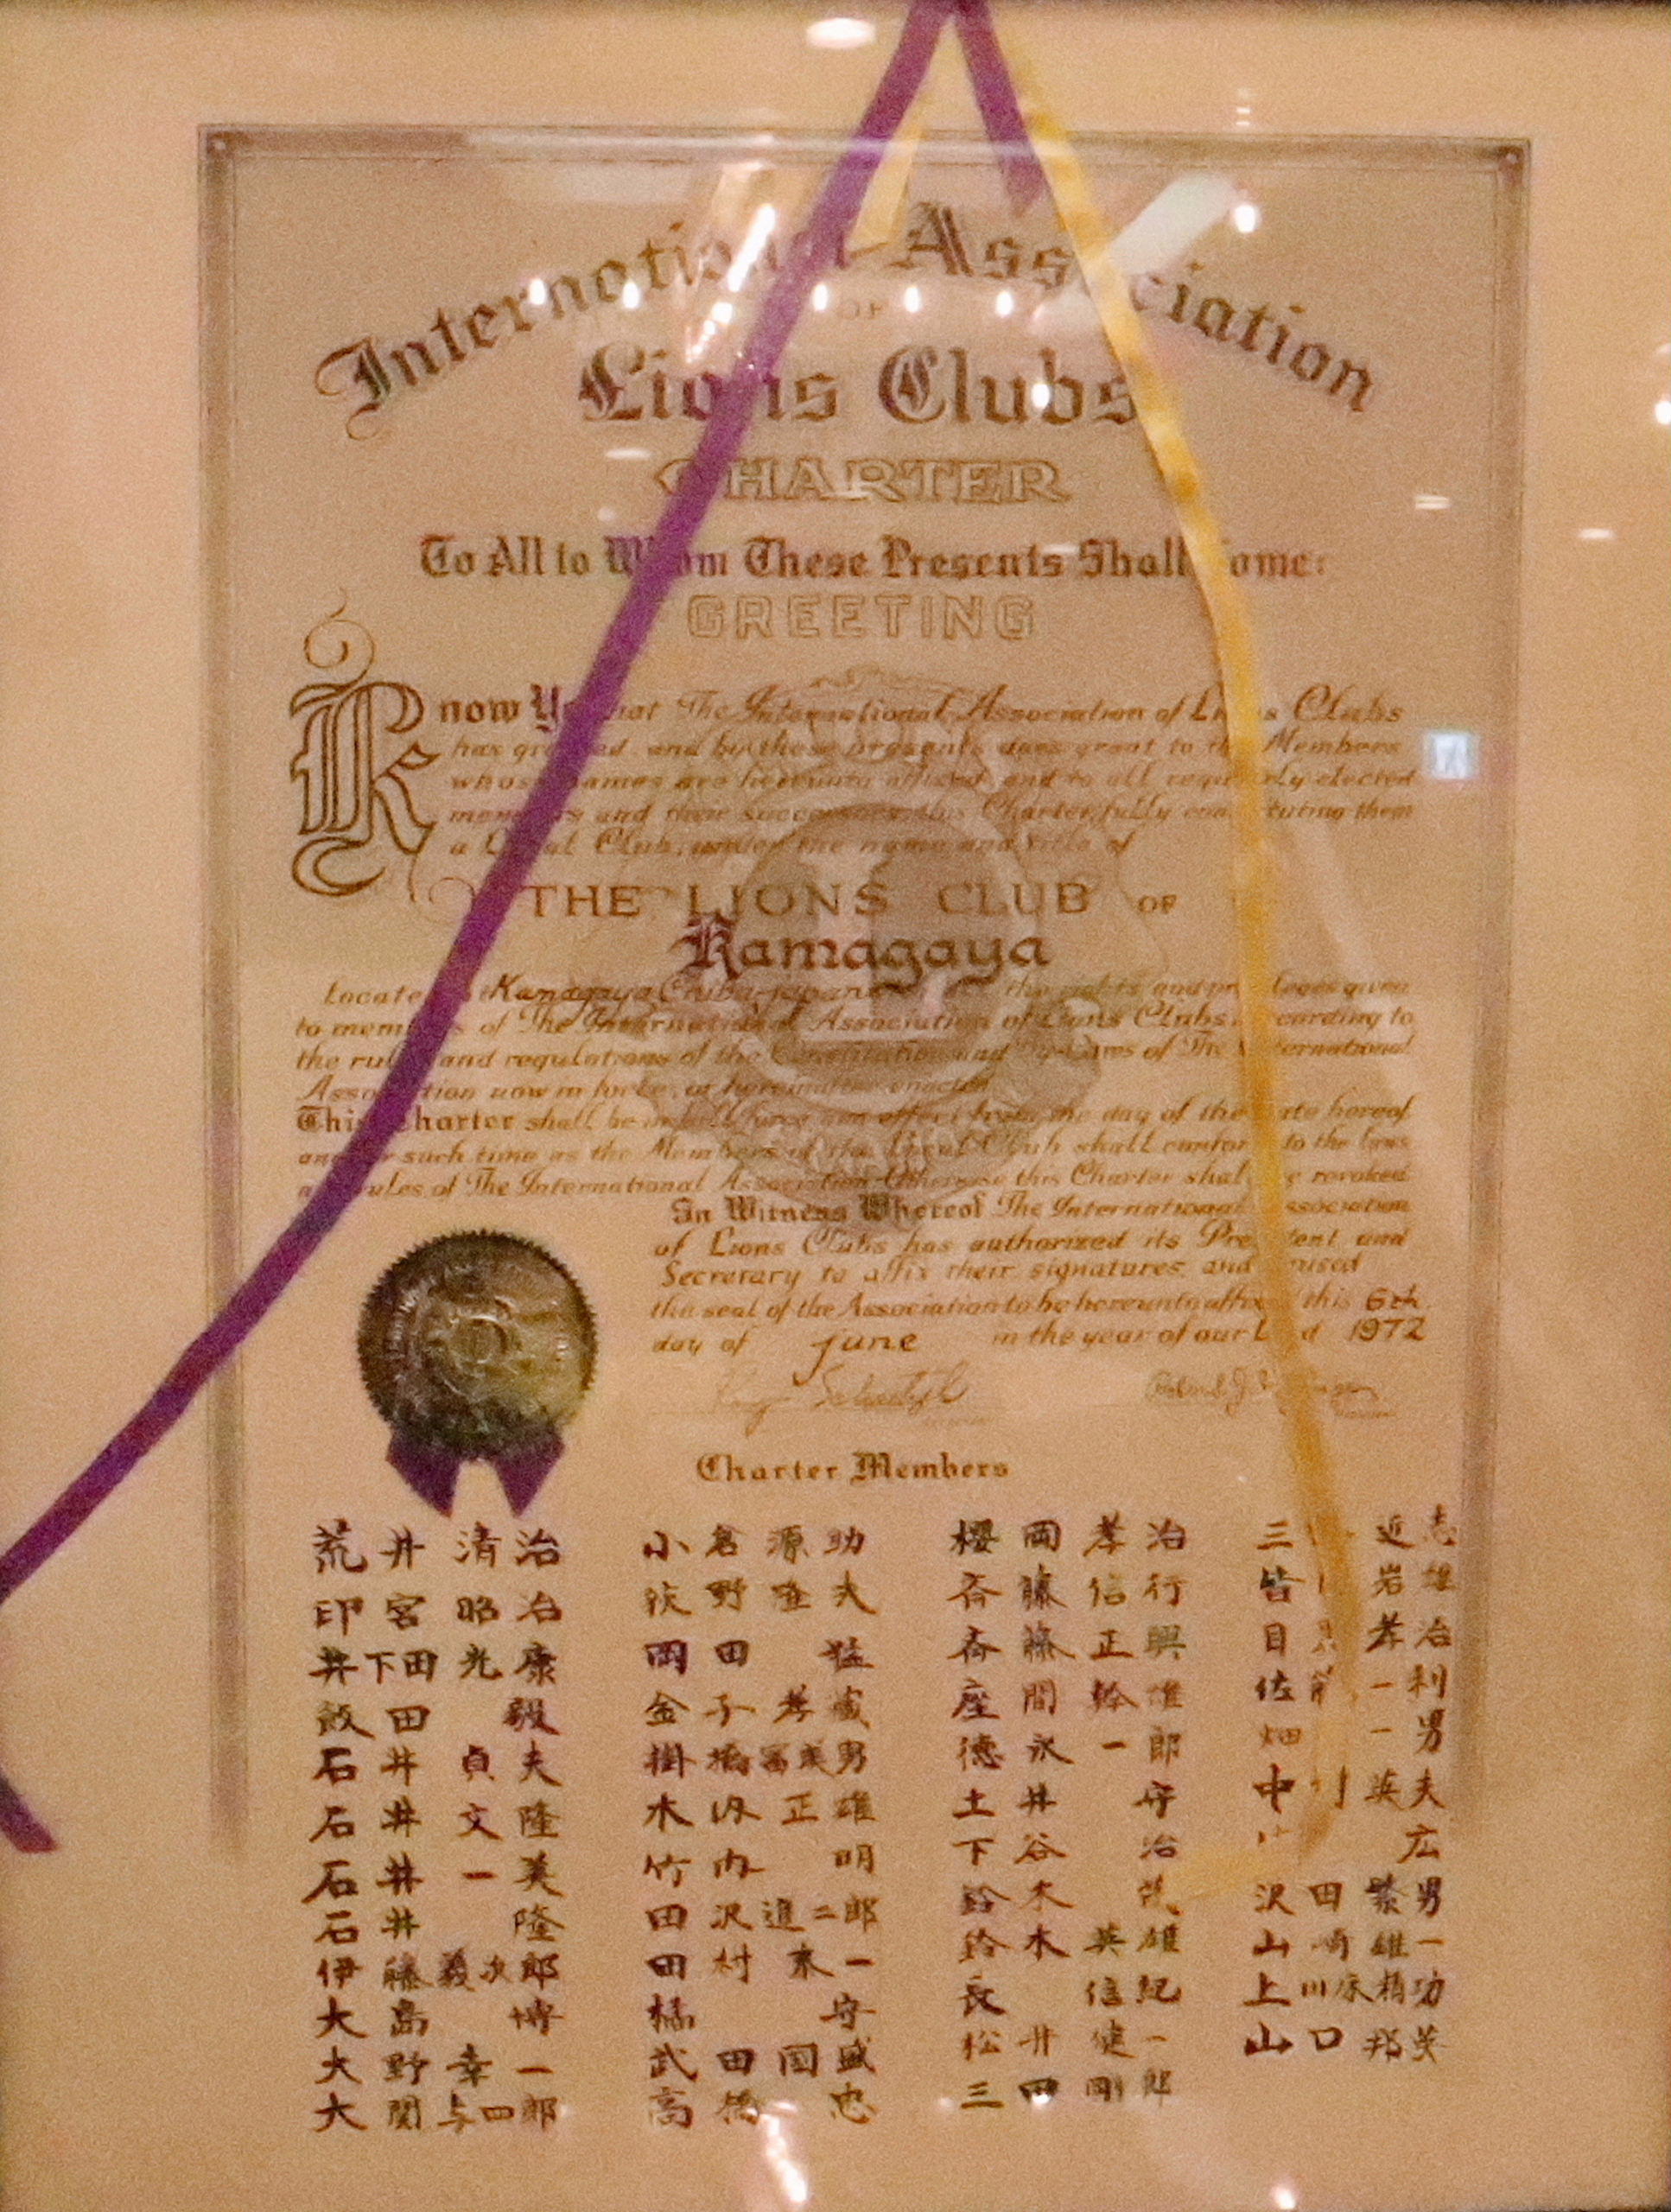 International Association
OF
Lions Clubs
CHARTER
To All to Whom These Presents Shall Come:
GREETING
Know Ye that The International Association of Lions Clubs
has granted and by these presents does grant to the Members
whose names are hereunto affixed and to all regularly elected
members and their successors this Charter fully constituting them
a Local Club, under the name and title of
THE LIONS CLUB OF
Kamagaya
Located at Kamagaya Chiba-japan the rights and privileges given
to members of The International Association of Lions Clubs, according to
the rules and regulations of the Constitution and By-Laws of The International
Association now in force, or hereinafter enacted
This Charter shall be in full force and effect from the day of the date hereof
and for such time as the Members of the Local Club shall conform to the laws
and rules of The International Association. Otherwise this Charter shall be revoked
In Witness Whereof The International Association
of Lions Clubs has authorized its President and
Secretary to affix their signatures and caused
the seal of the Association to be hereunto affixed this 6th
day of june in the year of our Lord 1972
Charter Members
荒井 清治
印宮 昭治
井下田 光康
飯田 毅
石井 貞夫
石井 文隆
石井 一美
石井 隆
伊藤 義次郎
大島 博
大野 幸一
大関 与四郎
小名 源助
野 隆夫
岡田 猛
金子 孝蔵
掛橋 富美男
木内 正雄
竹内 明
田沢 進二郎
田村 末一
橘 守
武田 国盛
高橋 忠
櫻岡 孝治
斉藤 信行
斉藤 正興
座間 幹雄
徳永 一郎
土井 守
下谷 治
鈴木 茂
鈴木 英雄
長 信紀
松井 健一
三田 剛郎
三 近志
皆 岩雄
目 孝治
佐 一利
畑 一男
中村 英夫
広
沢田 繁男
山崎 雄一
上川床 精功
山口 邦英